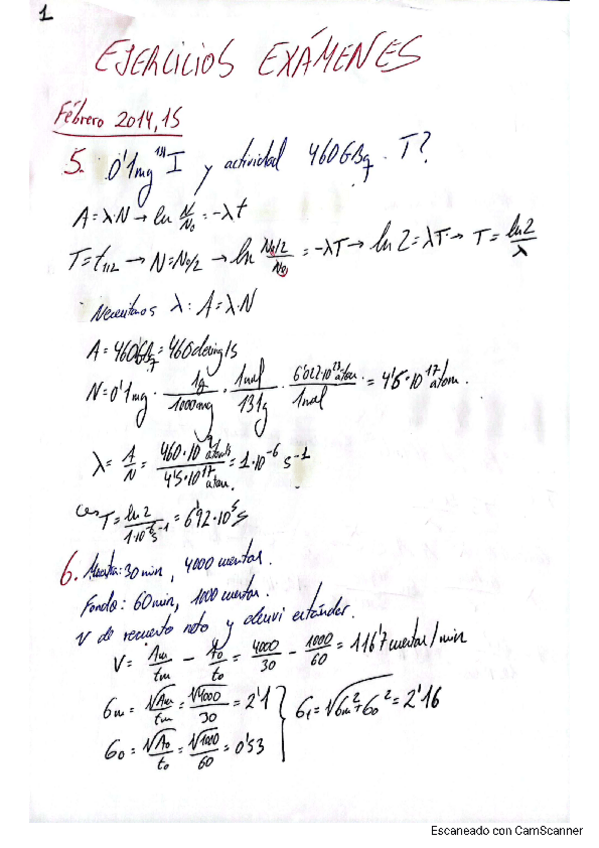 1
EJERCICIOS EXÁMENES
Febrero 2014,15
5. 0'1mg ¹³¹I y actividad 460GBq. T?
A = λ·N → ln N/N₀ = -λt
T = t₁/₂ → N = N₀/2 → ln (N₀/2)/N₀ = -λT → ln 2 = λT → T = ln2/λ
Necesitamos λ: A = λ·N
A = 460GBq = 460 desing/s
N = 0'1mg · 1g/1000mg · 1mol/131g · 6'022·10²³ átom/1mol = 4'5·10¹⁷ átom.
λ = A/N = 460·10⁹ /4'5·10¹⁷ átom. = 1·10⁻⁶ s⁻¹
T = ln 2/1·10⁻⁶ s⁻¹ = 6'92·10⁵ s
6. Muestra: 30 min, 4000 cuentas.
Fondo: 60 min, 1000 cuentas.
V de recuento neto y desvi estándar.
V = Am/tm - A₀/t₀ = 4000/30 - 1000/60 = 116'7 cuentas/min
σm = √Am/tm = √4000/30 = 2'1
σt = √σm² + σ₀² = 2'16
σ₀ = √A₀/t₀ = √1000/60 = 0'53
Escaneado con CamScanner